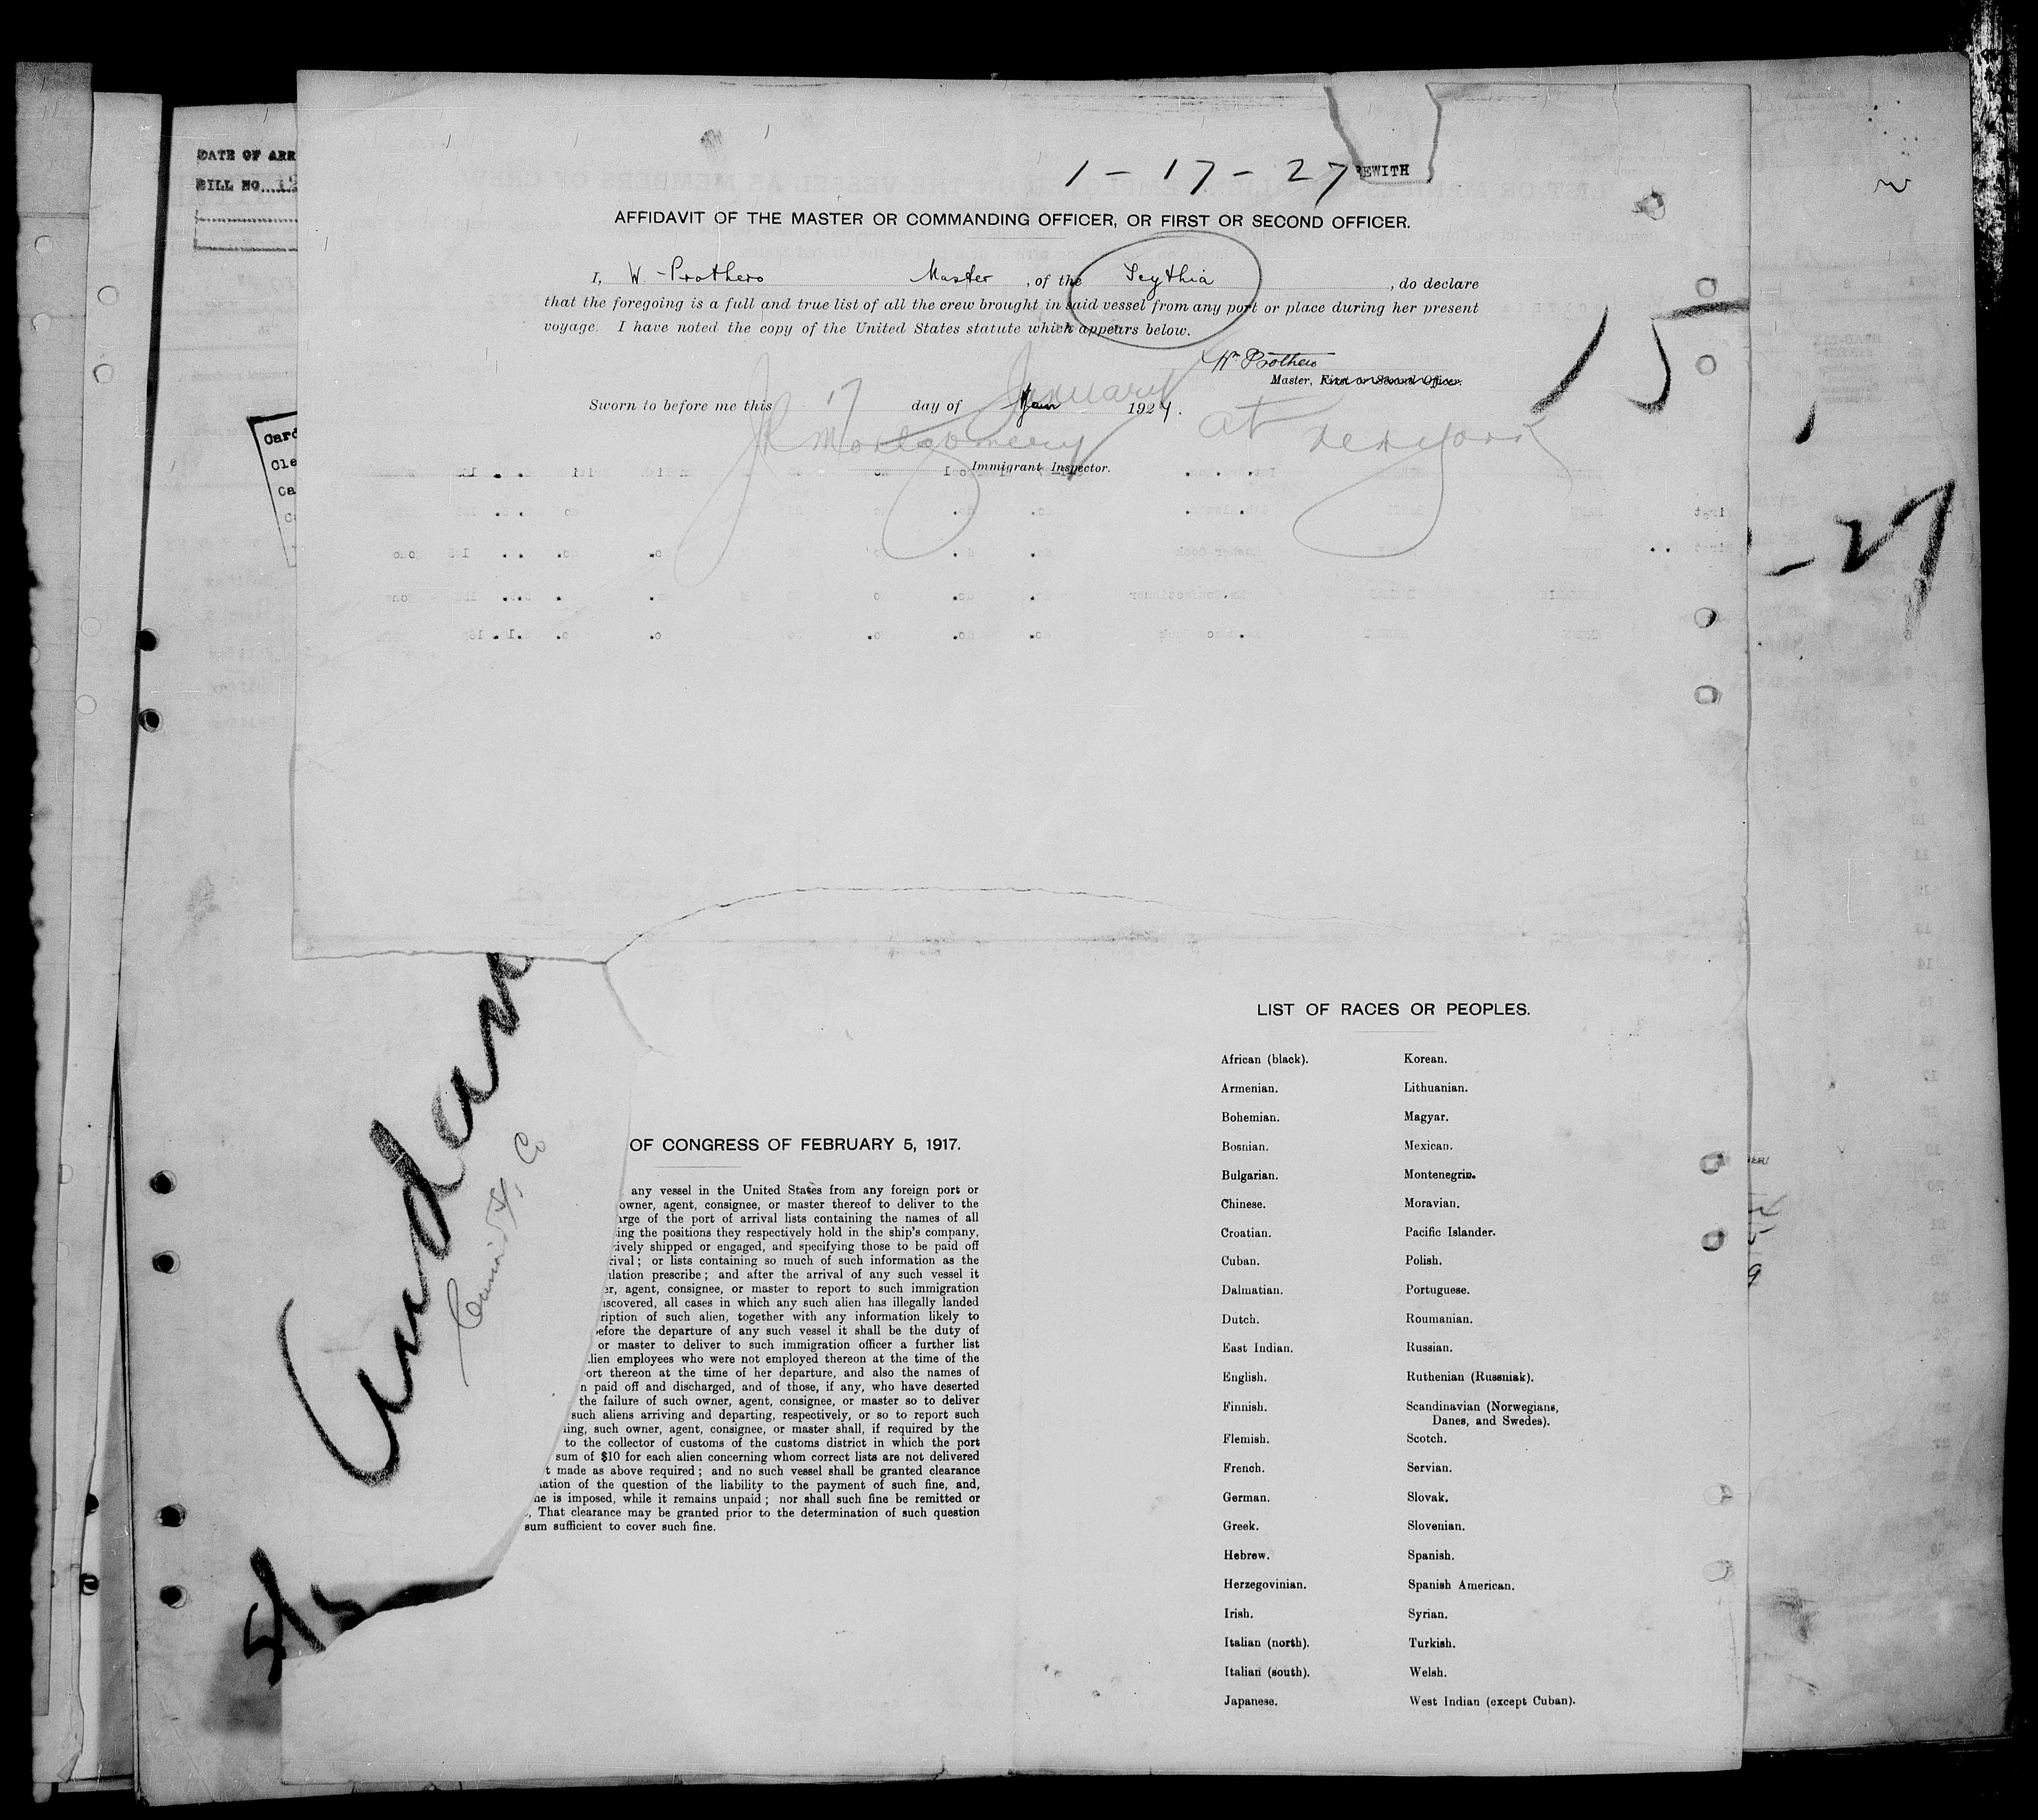 DATE OF ARR
BILL NO
1 - 17 - 27 REWITH
AFFIDAVIT OF THE MASTER OR COMMANDING OFFICER, OR FIRST OR SECOND OFFICER.
I, W. Prothero Master, of the Scythia, do declare
that the foregoing is a full and true list of all the crew brought in said vessel from any port or place during her present
voyage. I have noted the copy of the United States statute which appears below.
Wm Prothero
Master, First or Second Officer.
Sworn to before me this 17 day of Jan January 1927.
JR Montgomery at New York
Immigrant Inspector.
15
- 27
Card
Cle
Ca
LIST OF RACES OR PEOPLES.
African (black). Korean.
Armenian. Lithuanian.
Bohemian. Magyar.
Bosnian. Mexican.
Bulgarian. Montenegrin.
Chinese. Moravian.
Croatian. Pacific Islander.
Cuban. Polish.
Dalmatian. Portuguese.
Dutch. Roumanian.
East Indian. Russian.
English. Ruthenian (Russniak).
Finnish. Scandinavian (Norwegians,
Danes, and Swedes).
Flemish. Scotch.
French. Servian.
German. Slovak.
Greek. Slovenian.
Hebrew. Spanish.
Herzegovinian. Spanish American.
Irish. Syrian.
Italian (north). Turkish.
Italian (south). Welsh.
Japanese. West Indian (except Cuban).
OF CONGRESS OF FEBRUARY 5, 1917.
any vessel in the United States from any foreign port or
owner, agent, consignee, or master thereof to deliver to the
arge of the port of arrival lists containing the names of all
ing the positions they respectively hold in the ship's company,
tively shipped or engaged, and specifying those to be paid off
rival; or lists containing so much of such information as the
ulation prescribe; and after the arrival of any such vessel it
er, agent, consignee, or master to report to such immigration
iscovered, all cases in which any such alien has illegally landed
ription of such alien, together with any information likely to
efore the departure of any such vessel it shall be the duty of
or master to deliver to such immigration officer a further list
lien employees who were not employed thereon at the time of the
ort thereon at the time of her departure, and also the names of
n paid off and discharged, and of those, if any, who have deserted
the failure of such owner, agent, consignee, or master so to deliver
such aliens arriving and departing, respectively, or so to report such
ling, such owner, agent, consignee, or master shall, if required by the
to the collector of customs of the customs district in which the port
sum of $10 for each alien concerning whom correct lists are not delivered
t made as above required; and no such vessel shall be granted clearance
nation of the question of the liability to the payment of such fine, and,
ne is imposed, while it remains unpaid; nor shall such fine be remitted or
., That clearance may be granted prior to the determination of such question
sum sufficient to cover such fine.